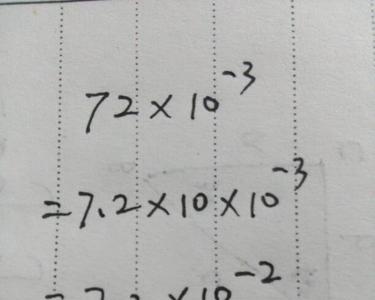 72×10⁻³
=7.2×10×10⁻³
=7.2×10⁻²